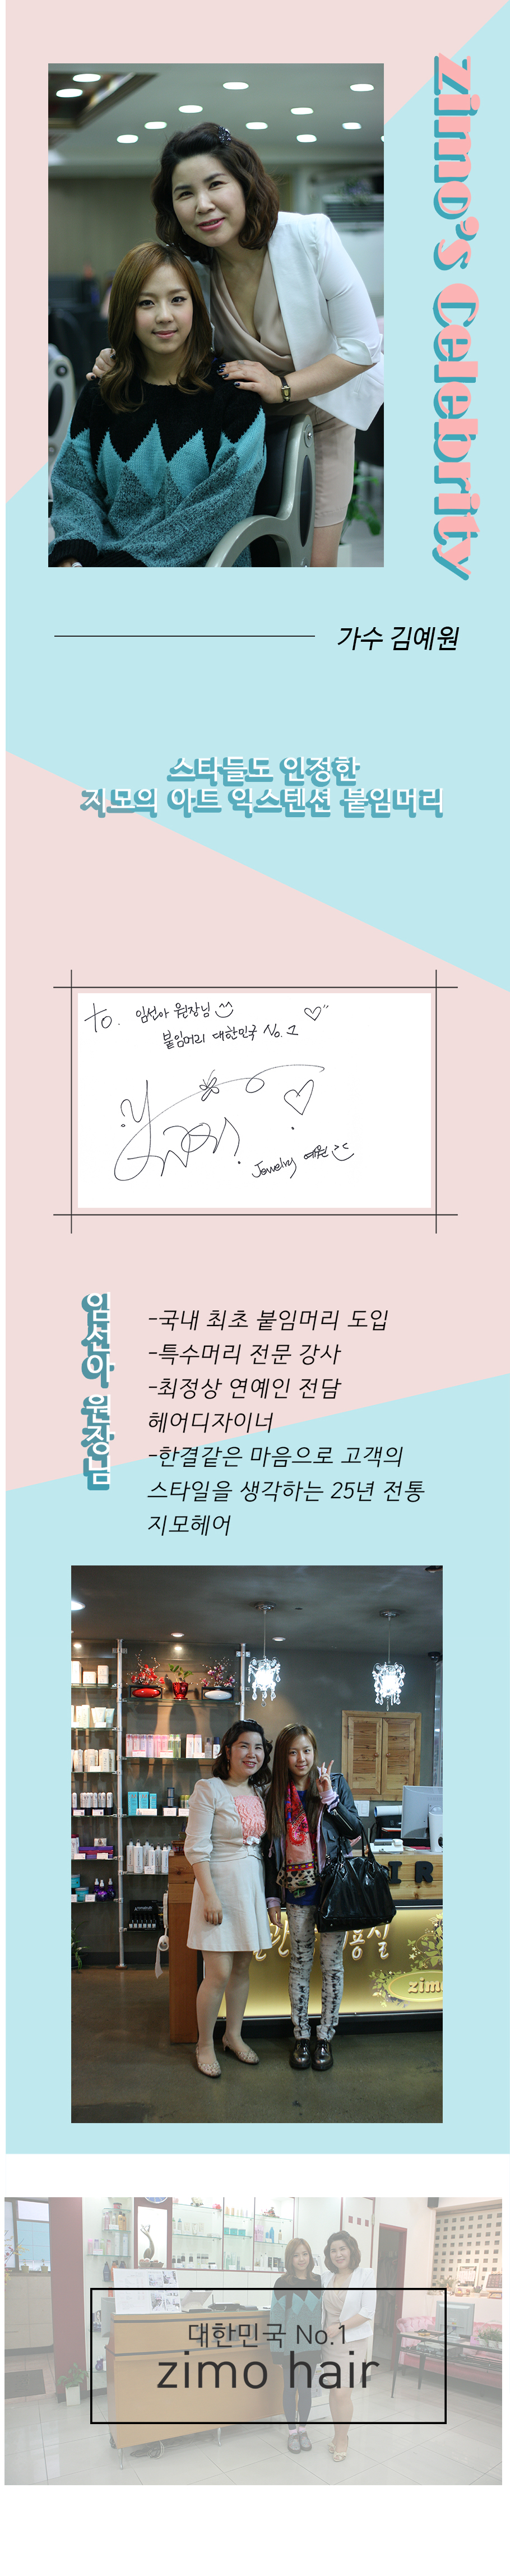 zimo's Celebrity
가수 김예원
스타들도 인정한
지모의 아트 익스텐션 붙임머리
To. 임선아 원장님
붙임머리 대한민국 No. 1
Jewelry 예원
임선아 원장님
-국내 최초 붙임머리 도입
-특수머리 전문 강사
-최정상 연예인 전담
헤어디자이너
-한결같은 마음으로 고객의
스타일을 생각하는 25년 전통
지모헤어
대한민국 No.1
zimo hair